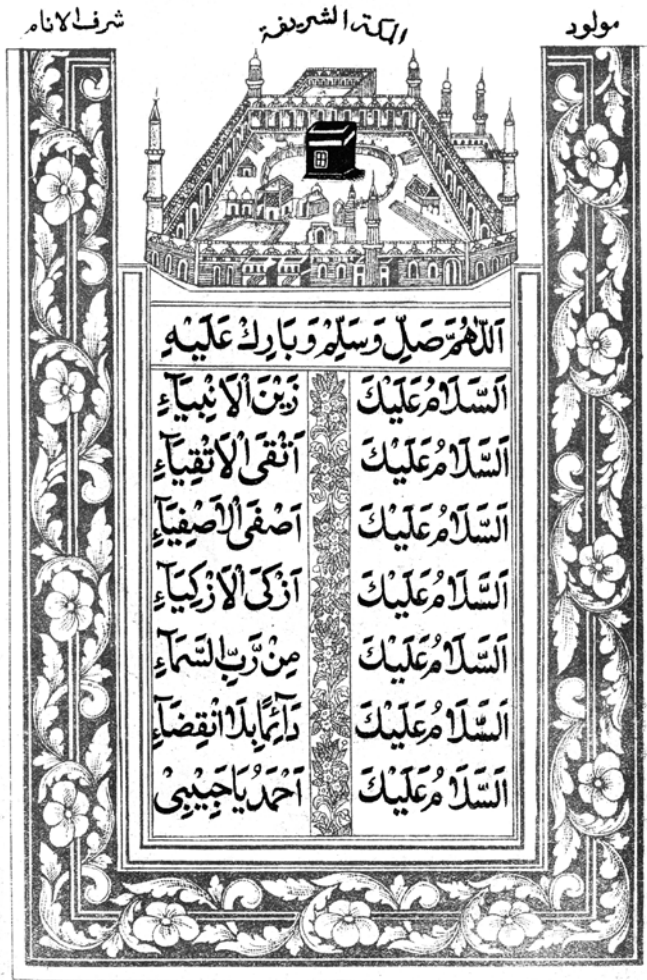 مولود
المكة الشريفة
شرف الانام
اَللّٰهُمَّ صَلِّ وَسَلِّمْ وَبَارِكْ عَلَيْهِ
اَلسَّلَامُ عَلَيْكَ زَيْنَ الْاَنْبِيَآءِ
اَلسَّلَامُ عَلَيْكَ اَتْقَى الْاَتْقِيَآءِ
اَلسَّلَامُ عَلَيْكَ اَصْفَى الْاَصْفِيَآءِ
اَلسَّلَامُ عَلَيْكَ اَزْكَى الْاَزْكِيَآءِ
اَلسَّلَامُ عَلَيْكَ مِنْ رَّبِّ السَّمَآءِ
اَلسَّلَامُ عَلَيْكَ دَآئِمًا بِلَا انْقِضَآءِ
اَلسَّلَامُ عَلَيْكَ اَحْمَدُ يَا حَبِيْبِيْ